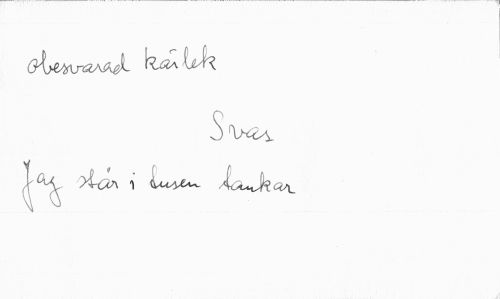 obesvarad kärlek
Svas
Jag står i tusen tankar